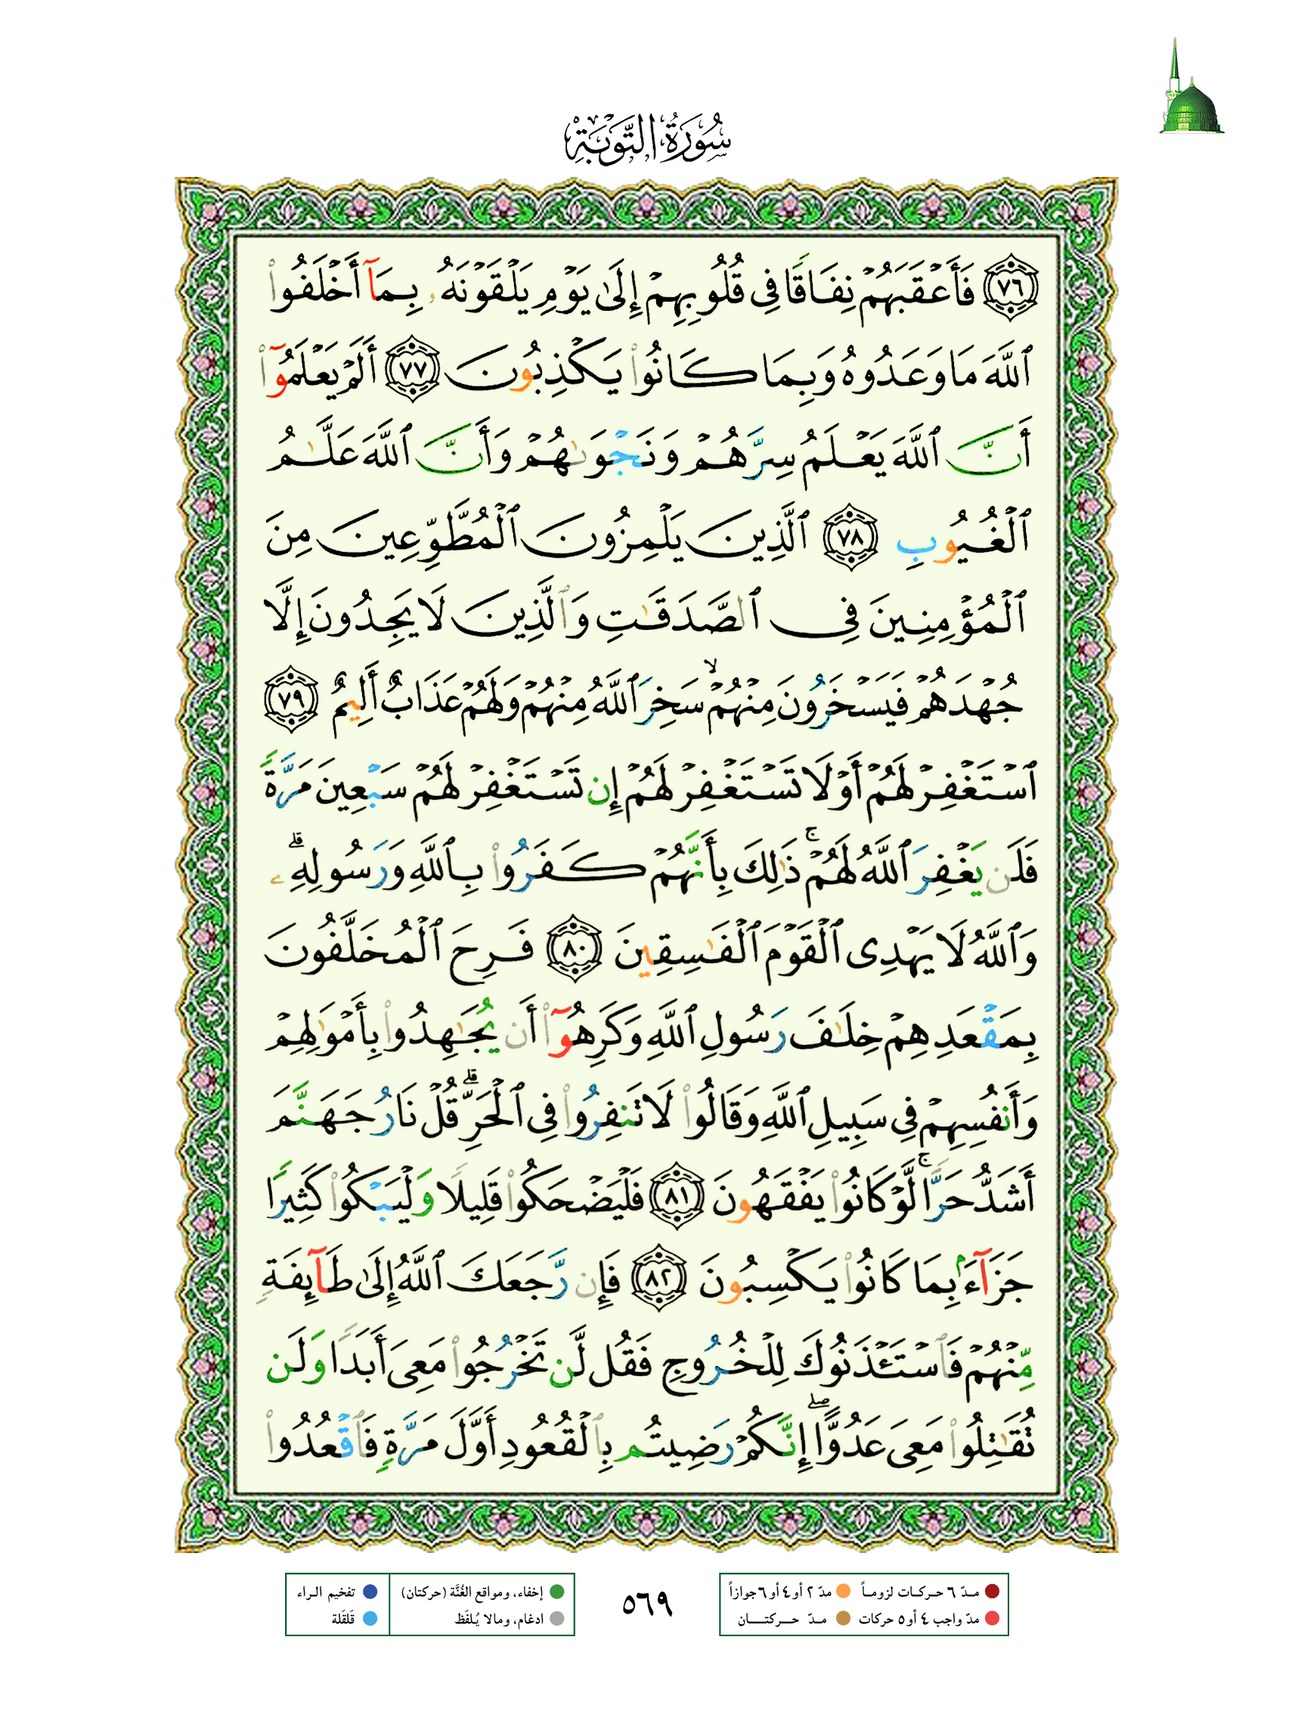 سُورَةُ التَّوبَةِ
﴿٧٦﴾ فَأَعْقَبَهُمْ نِفَاقًا فِى قُلُوبِهِمْ إِلَىٰ يَوْمِ يَلْقَوْنَهُۥ بِمَآ أَخْلَفُوا۟
ٱللَّهَ مَا وَعَدُوهُ وَبِمَا كَانُوا۟ يَكْذِبُونَ ﴿٧٧﴾ أَلَمْ يَعْلَمُوٓا۟
أَنَّ ٱللَّهَ يَعْلَمُ سِرَّهُمْ وَنَجْوَىٰهُمْ وَأَنَّ ٱللَّهَ عَلَّٰمُ
ٱلْغُيُوبِ ﴿٧٨﴾ ٱلَّذِينَ يَلْمِزُونَ ٱلْمُطَّوِّعِينَ مِنَ
ٱلْمُؤْمِنِينَ فِى ٱلصَّدَقَٰتِ وَٱلَّذِينَ لَا يَجِدُونَ إِلَّا
جُهْدَهُمْ فَيَسْخَرُونَ مِنْهُمْ ۙ سَخِرَ ٱللَّهُ مِنْهُمْ وَلَهُمْ عَذَابٌ أَلِيمٌ ﴿٧٩﴾
ٱسْتَغْفِرْ لَهُمْ أَوْ لَا تَسْتَغْفِرْ لَهُمْ إِن تَسْتَغْفِرْ لَهُمْ سَبْعِينَ مَرَّةً
فَلَن يَغْفِرَ ٱللَّهُ لَهُمْ ۚ ذَٰلِكَ بِأَنَّهُمْ كَفَرُوا۟ بِٱللَّهِ وَرَسُولِهِۦ ۗ
وَٱللَّهُ لَا يَهْدِى ٱلْقَوْمَ ٱلْفَٰسِقِينَ ﴿٨٠﴾ فَرِحَ ٱلْمُخَلَّفُونَ
بِمَقْعَدِهِمْ خِلَٰفَ رَسُولِ ٱللَّهِ وَكَرِهُوٓا۟ أَن يُجَٰهِدُوا۟ بِأَمْوَٰلِهِمْ
وَأَنفُسِهِمْ فِى سَبِيلِ ٱللَّهِ وَقَالُوا۟ لَا تَنفِرُوا۟ فِى ٱلْحَرِّ ۗ قُلْ نَارُ جَهَنَّمَ
أَشَدُّ حَرًّا ۚ لَّوْ كَانُوا۟ يَفْقَهُونَ ﴿٨١﴾ فَلْيَضْحَكُوا۟ قَلِيلًا وَلْيَبْكُوا۟ كَثِيرًا
جَزَآءًۢ بِمَا كَانُوا۟ يَكْسِبُونَ ﴿٨٢﴾ فَإِن رَّجَعَكَ ٱللَّهُ إِلَىٰ طَآئِفَةٍ
مِّنْهُمْ فَٱسْتَـْٔذَنُوكَ لِلْخُرُوجِ فَقُل لَّن تَخْرُجُوا۟ مَعِىَ أَبَدًا وَلَن
تُقَٰتِلُوا۟ مَعِىَ عَدُوًّا ۖ إِنَّكُمْ رَضِيتُم بِٱلْقُعُودِ أَوَّلَ مَرَّةٍ فَٱقْعُدُوا۟
مدّ ٦ حركات لزوماً
مدّ ٢ أو ٤ أو ٦ جوازاً
مدّ واجب ٤ أو ٥ حركات
مدّ حركتان
٥٦٩
إخفاء، ومواقع الغُنَّة (حركتان)
تفخيم الراء
ادغام، ومالا يُلفَظ
قلقلة